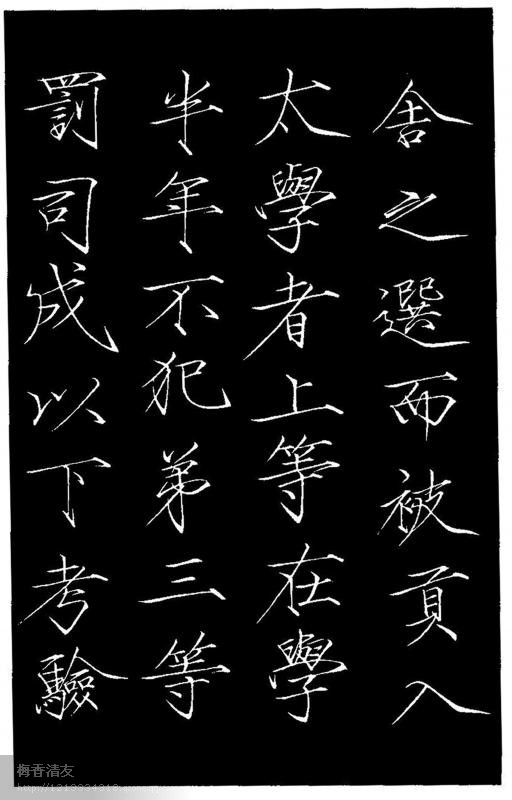 舎之選而被貢入
太學者上等在學
半年不犯弟三等
罰司成以下考驗
梅香清友